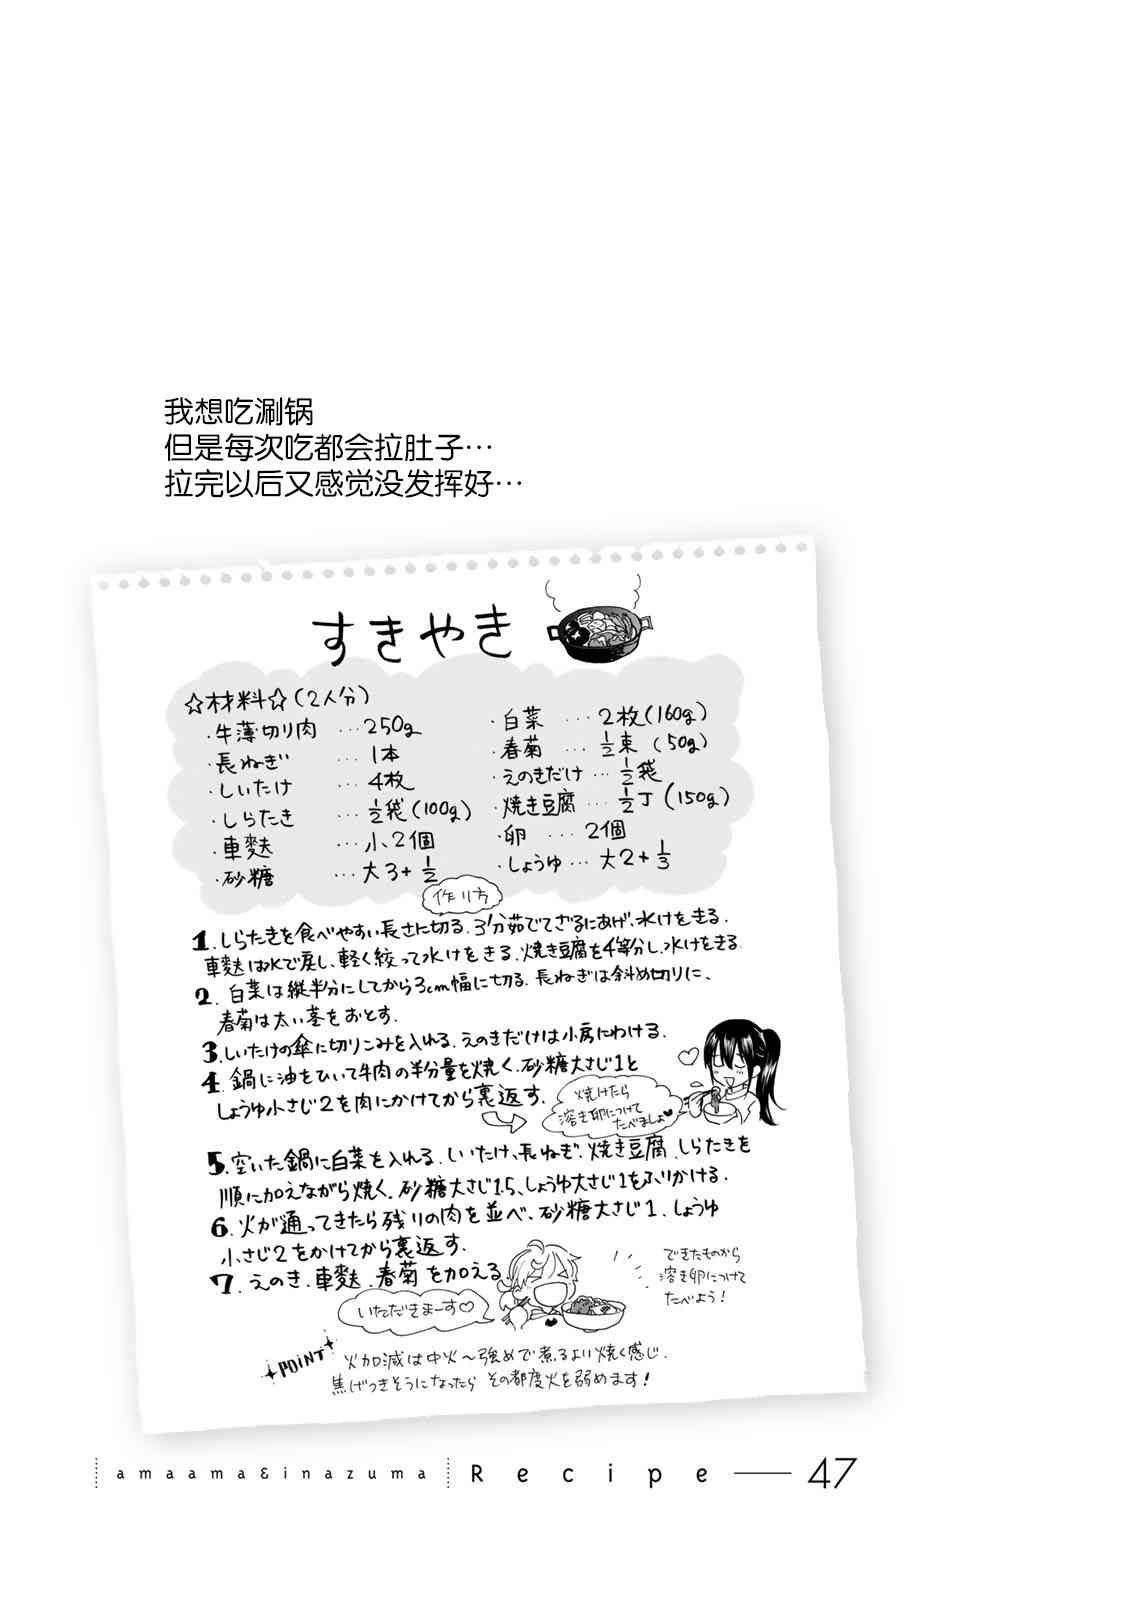 我想吃涮锅
但是每次吃都会拉肚子…
拉完以后又感觉没发挥好…
すきやき
☆材料☆(2人分)
・牛薄切り肉 …250g
・長ねぎ …1本
・しいたけ …4枚
・しらたき …½袋(100g)
・車麩 …小2個
・砂糖 …大3+½
・白菜 …2枚(160g)
・春菊 …½束(50g)
・えのきだけ…½袋
・焼き豆腐…½丁(150g)
・卵 …2個
・しょうゆ…大2+⅓
作り方
1.しらたきを食べやすい長さに切る.3分茹でてざるにあげ、水けをきる.
車麩は水で戻し、軽く絞って水けをきる.焼き豆腐を4等分し、水けをきる.
2.白菜は縦半分にしてから3cm幅に切る.長ねぎは斜め切りに、
春菊は太い茎をおとす.
3.しいたけの傘に切りこみを入れる.えのきだけは小房にわける.
4.鍋に油をひいて牛肉の半分量を焼く.砂糖大さじ1と
しょうゆ小さじ2を肉にかけてから裏返す.
焼けたら
溶き卵につけて
たべましょ♥
5.空いた鍋に白菜を入れる.しいたけ、長ねぎ、焼き豆腐、しらたきを
順に加えながら焼く.砂糖大さじ1.5、しょうゆ大さじ1をふりかける.
6.火が通ってきたら残りの肉を並べ、砂糖大さじ1、しょうゆ
小さじ2をかけてから裏返す.
7.えのき、車麩、春菊を加える.
できたものから
溶き卵につけて
たべよう!
いただきまーす♡
POINT
火加減は中火〜強めで煮るより焼く感じ.
焦げつきそうになったら その都度火を弱めます!
amaama&inazuma Recipe 47